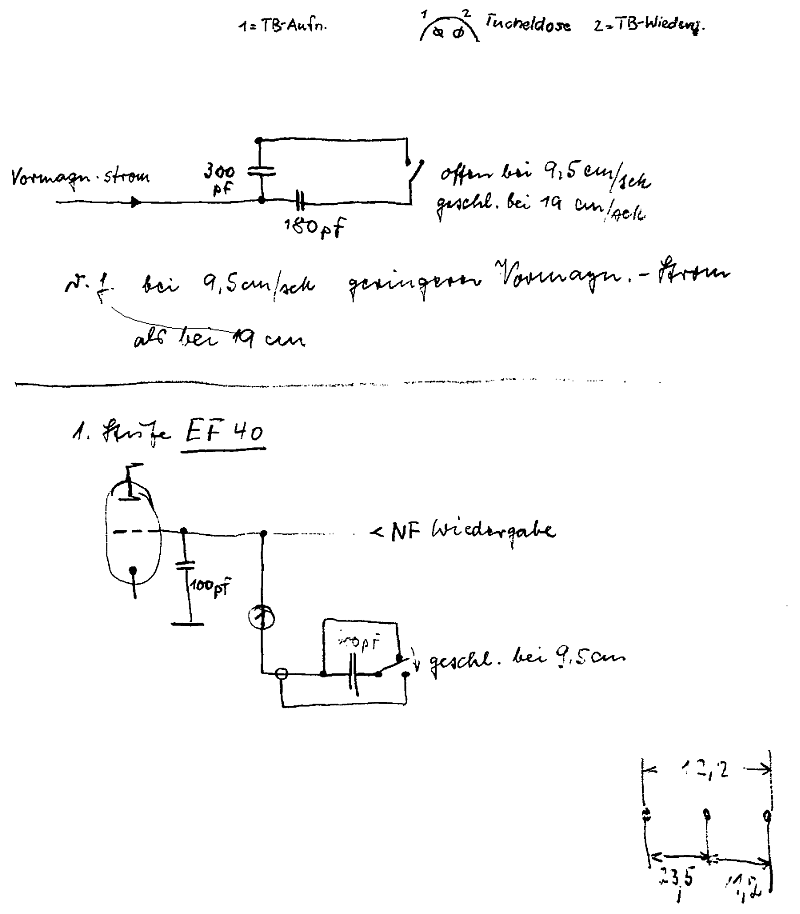 1 = TB-Aufn.
1 2
Tucheldose 2 = TB-Wiederg.
Vormagn.strom
300
pF
180pF
offen bei 9,5 cm/sek
geschl. bei 19 cm/sek
bei 9,5cm/sek geringerer Vormagn.-Strom
als bei 19 cm
1. Stufe EF 40
< NF Wiedergabe
100pF
pF
geschl. bei 9,5cm
12,2
23,5